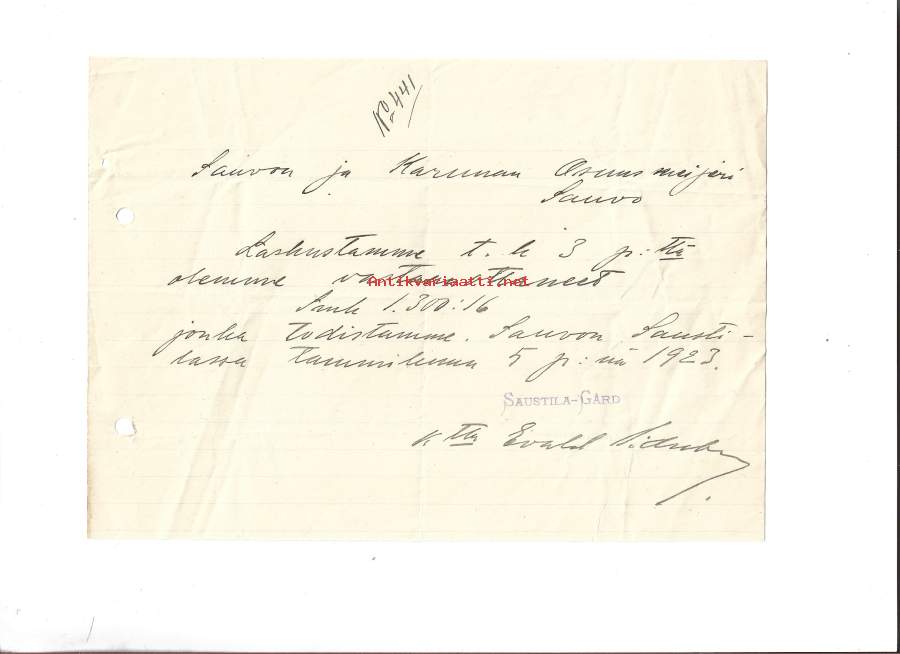 No 441
Sauvon ja Karunan Osuusmeijeri
Sauvo
Laskustamme t. k 3 p:ltä
olemme vastaanottaneet
Antikvariaatti.net
Smk 1.300:16
jonka todistamme. Sauvon Sausti-
lassa tammikuun 5 p:nä 1923.
SAUSTILA-GÅRD
Evald